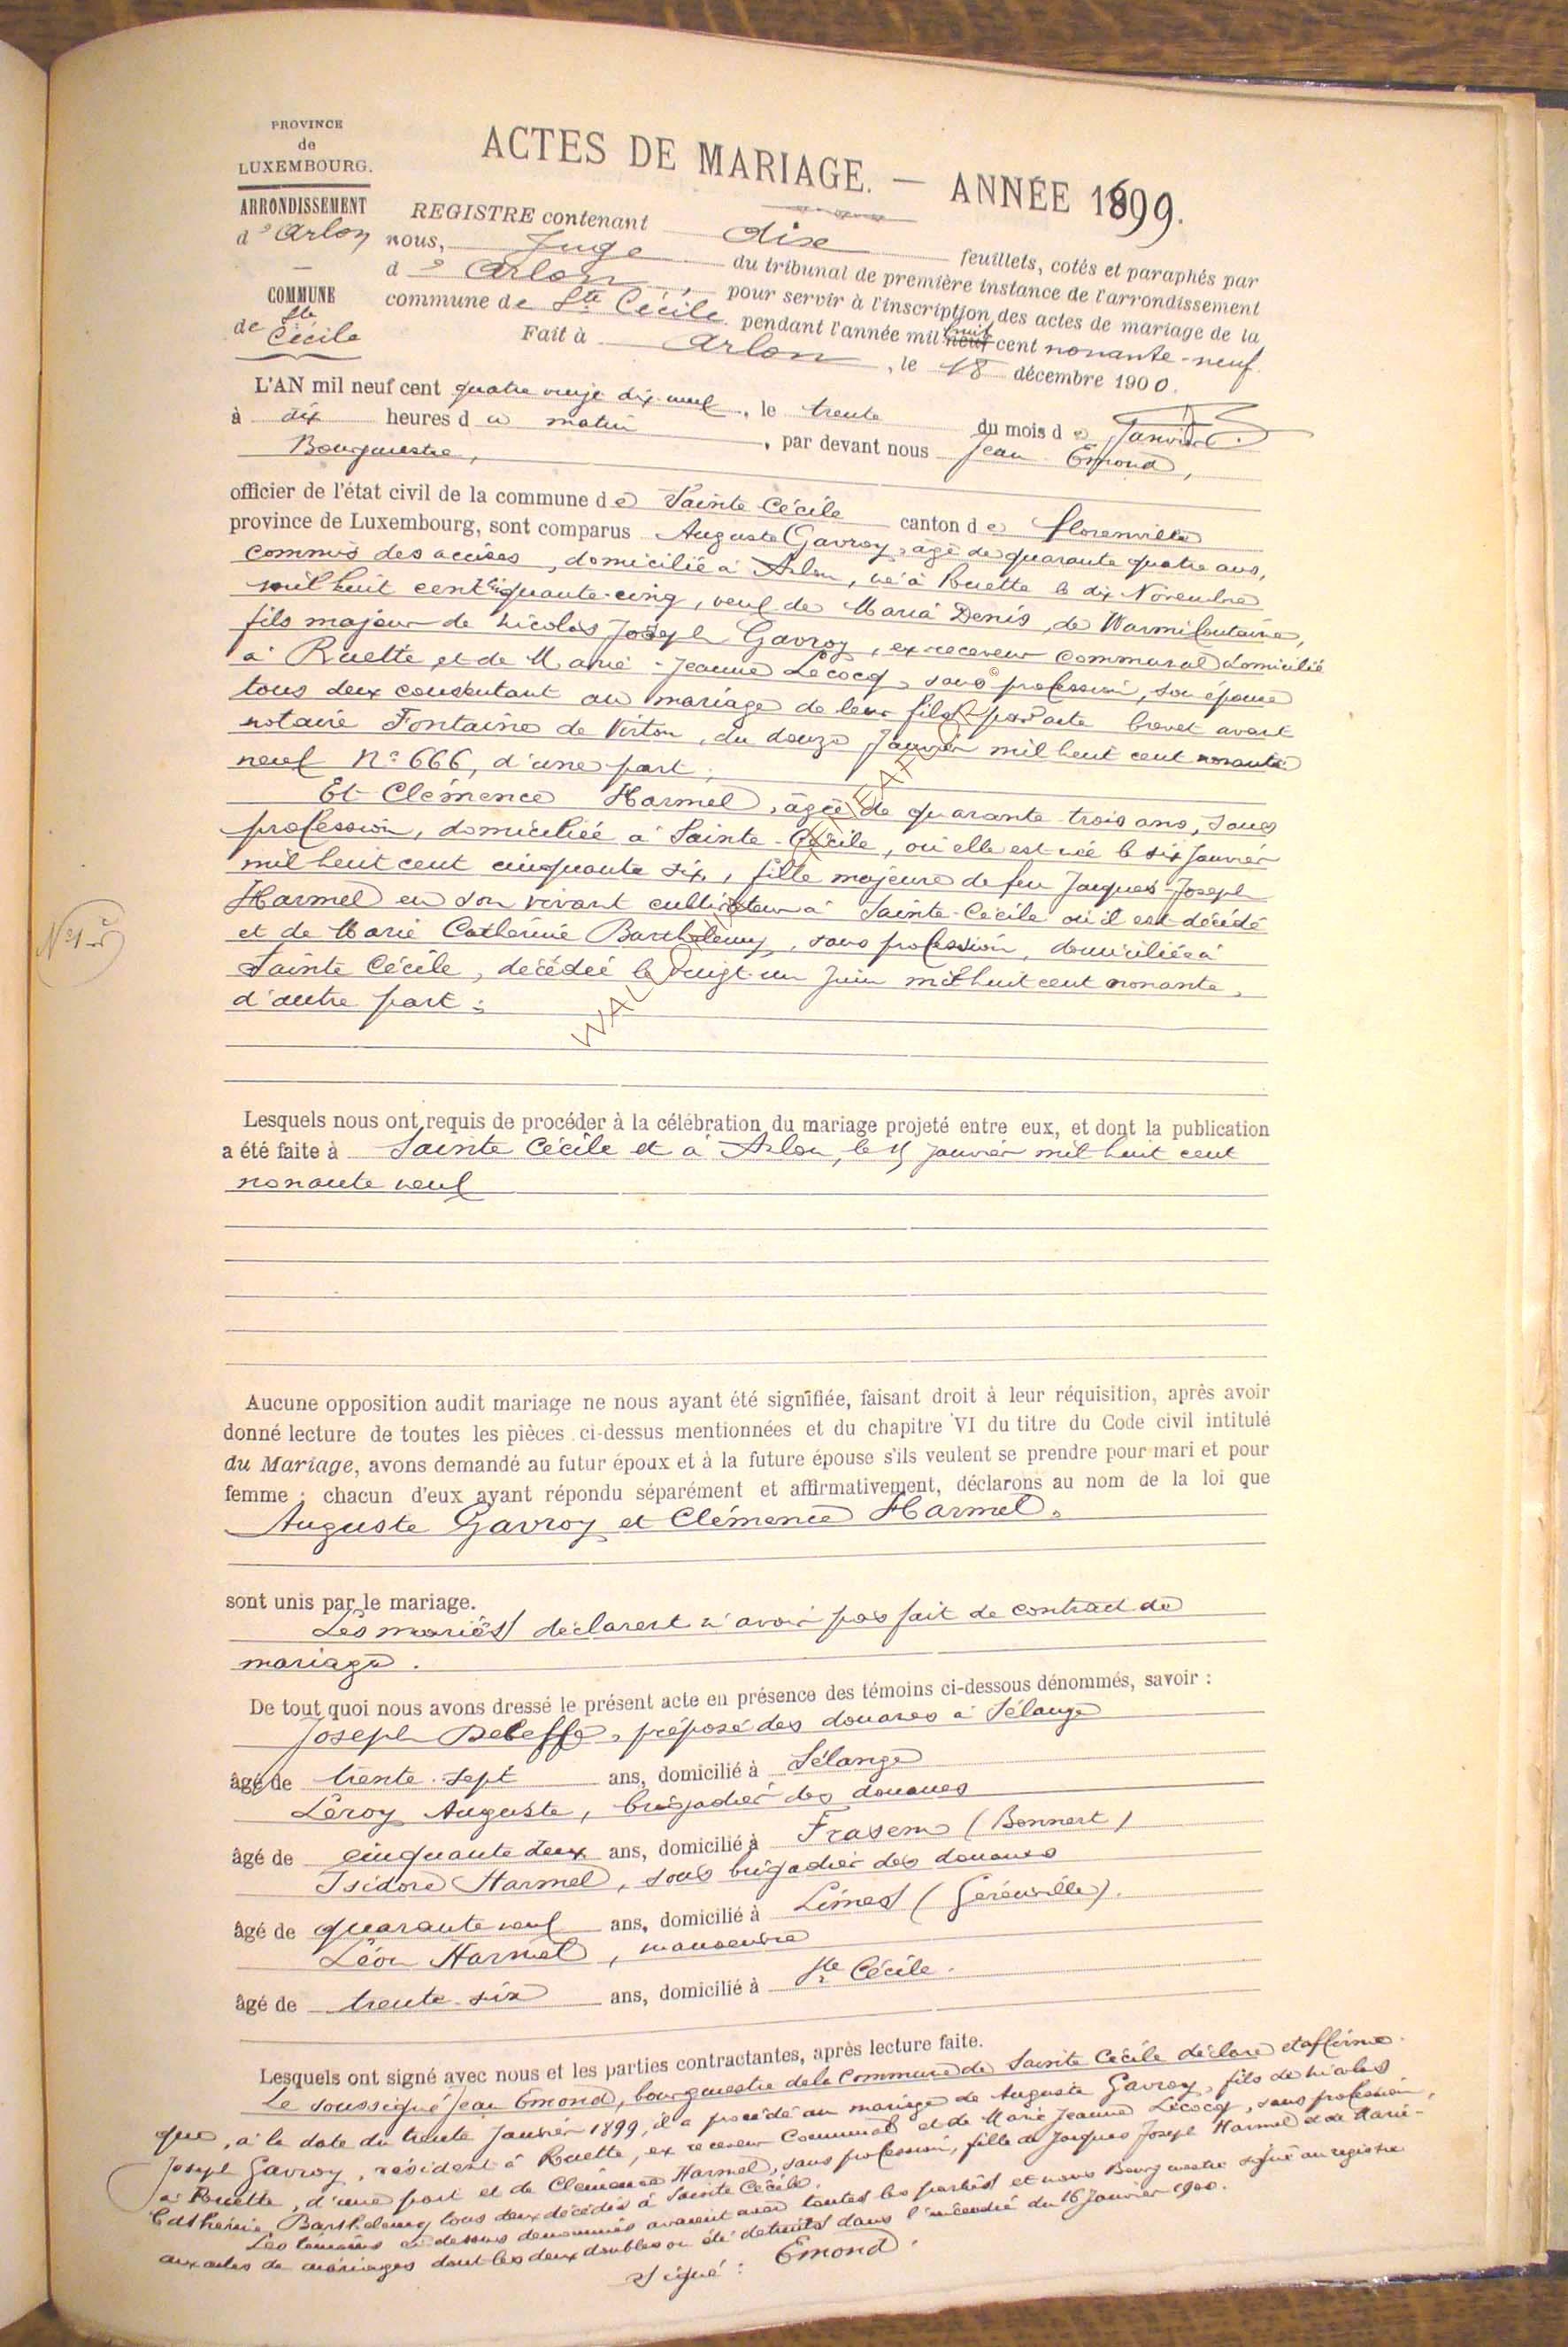 PROVINCE
de
LUXEMBOURG.
ARRONDISSEMENT
d'Arlon
COMMUNE
de Ste
Cécile
ACTES DE MARIAGE. — ANNÉE 1899.
REGISTRE contenant dix feuillets, cotés et paraphés par
nous, Juge du tribunal de première instance de l'arrondissement
d'Arlon, pour servir à l'inscription des actes de mariage de la
commune de Ste Cécile pendant l'année mil neuf huit cent nonante-neuf.
Fait à Arlon, le 18 décembre 1900.
L'AN mil neuf cent quatre vingt dix neuf, le trente du mois de Janvier
à dix heures du matin, par devant nous Jean Emond,
Bourgmestre,
officier de l'état civil de la commune de Sainte Cécile canton de florenville
province de Luxembourg, sont comparus Auguste Gavroy, âgé de quarante quatre ans,
commis des accises, domicilié à Arlon, né à Ruette le dix Novembre
mil huit cent cinquante-cinq, veuf de Maria Denis, de Warmifontaine,
fils majeur de Nicolas Joseph Gavroy, ex-receveur communal domicilié
à Ruette et de Marie-Jeanne Lecocq, sans profession, son épouse
tous deux consentant au mariage de leur fils par acte brevet avant
notaire Fontaine de Virton, du douze Janvier mil huit cent nonante
neuf No 666, d'une part;
Et Clémence Harmel, âgée de quarante trois ans, sans
profession, domiciliée à Sainte-Cécile, où elle est née le six Janvier
mil huit cent cinquante six, fille majeure de feu Jacques-Joseph
Harmel en son vivant cultivateur à Sainte-Cécile où il est décédé
et de Marie Catherine Barthelemy, sans profession, domiciliée à
Sainte Cécile, décédée le vingt-un Juin mil huit cent nonante,
d'autre part:
No 1
Lesquels nous ont requis de procéder à la célébration du mariage projeté entre eux, et dont la publication
a été faite à Sainte Cécile et à Arlon, le 15 janvier mil huit cent
nonante neuf
Aucune opposition audit mariage ne nous ayant été signifiée, faisant droit à leur réquisition, après avoir
donné lecture de toutes les pièces ci-dessus mentionnées et du chapitre VI du titre du Code civil intitulé
du Mariage, avons demandé au futur époux et à la future épouse s'ils veulent se prendre pour mari et pour
femme ; chacun d'eux ayant répondu séparément et affirmativement, déclarons au nom de la loi que
Auguste Gavroy et Clémence Harmel.
sont unis par le mariage.
Les mariés déclarent n'avoir pas fait de contract de
mariage.
De tout quoi nous avons dressé le présent acte en présence des témoins ci-dessous dénommés, savoir :
Joseph Deleffe, préposé des douanes à Sélange
âgé de trente-sept ans, domicilié à Sélange
Leroy Auguste, brigadier des douanes
âgé de cinquante deux ans, domicilié à Frasem (Bonnert)
Isidore Harmel, sous brigadier des douanes
âgé de quarante neuf ans, domicilié à Limes (Gérouville).
Léon Harmel, manoeuvre
âgé de trente-six ans, domicilié à Ste Cécile.
Lesquels ont signé avec nous et les parties contractantes, après lecture faite.
Le soussigné Jean Emond, bourgmestre de la Commune de Sainte Cécile déclare et affirme
que, à la date du trente Janvier 1899, il a procédé au mariage de Auguste Gavroy, fils de Nicolas
Joseph Gavroy, résident à Ruette, ex receveur Communal et de Marie Jeanne Lecocq, sans profession,
à Ruette, d'une part et de Clemence Harmel, sans profession, fille de Jacques Joseph Harmel et de Marie-
Catherine Barthelemy tous deux décédés à Sainte Cécile.
Les témoins ci-dessus dénommés avaient avec toutes les parties et nous Bourgmestre signé au registre
aux actes de mariages dont les deux doubles ont été détruits dans l'incendie du 16 Janvier 1900.
Signé : Emond.